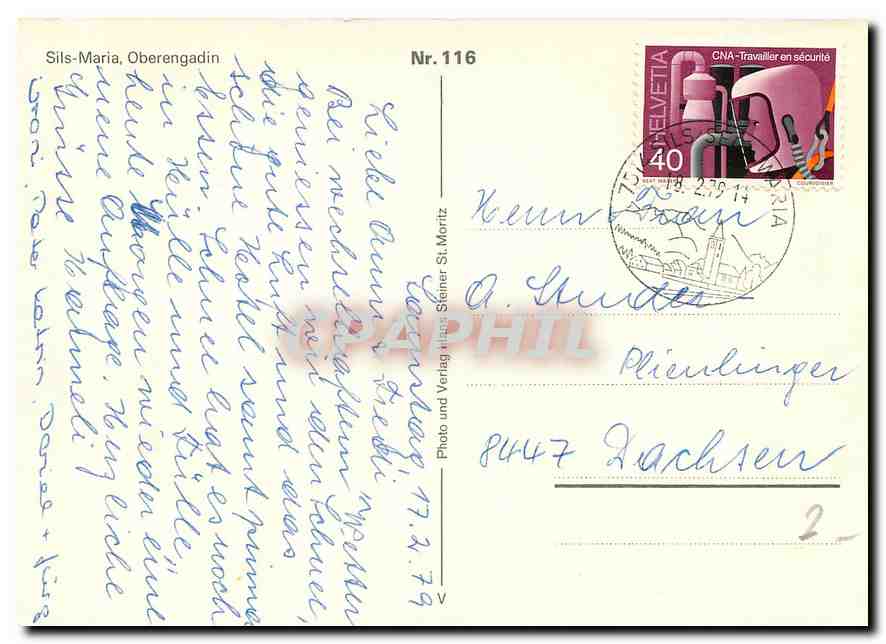 Sils-Maria, Oberengadin
Nr. 116
Samstag, 17.2.79
Liebe Anni + Fredi
Bei wechselhaftem Wetter
geniessen wir den Schnee,
die gute Luft und das
schöne Hotel samt prima
Essen. Schnee hat es noch
in Hülle und Fülle,
heute Morgen wieder eine
neue Auflage. Herzliche
Grüsse
Vroni, Peter, Daniel + Jürg
Photo und Verlag Hans Steiner St. Moritz
V
HELVETIA
CNA-Travailler en sécurité
40
COURVOISIER
7514 SILS-SEGL MARIA
18.2.79-14
Herrn + Frau
A. Studer
8447 Dachsen
2.-
CPAPHIL